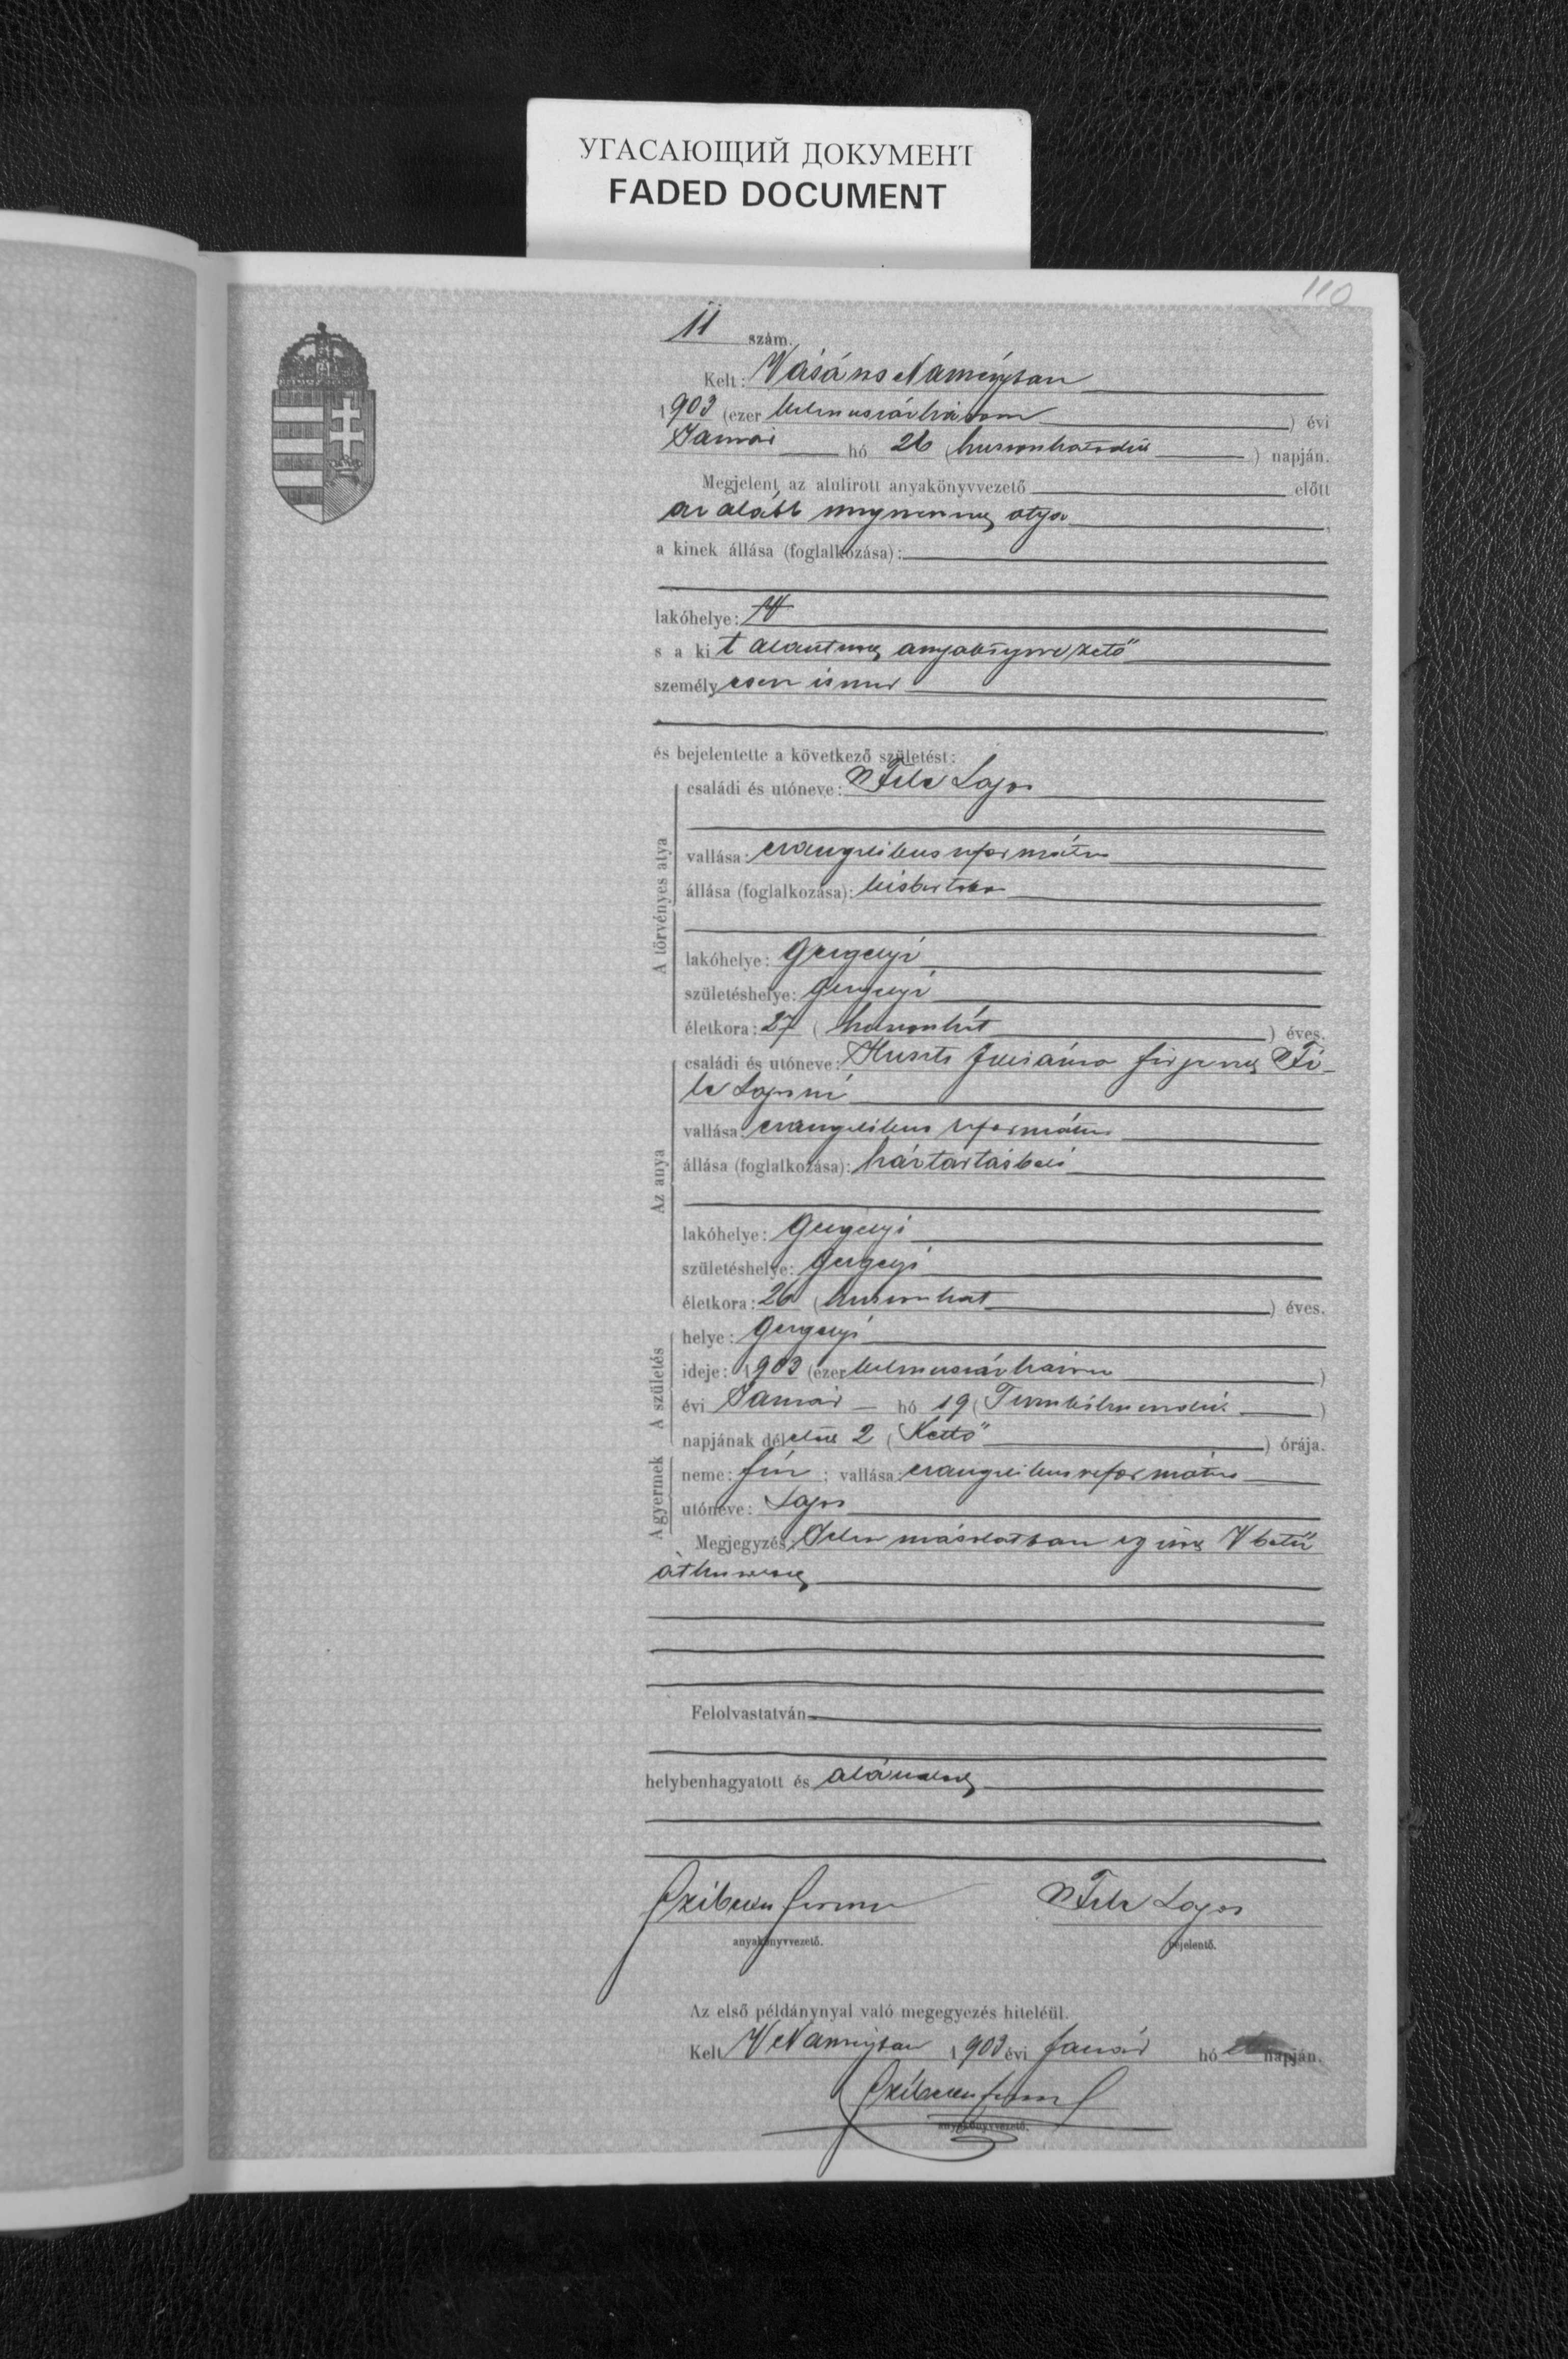 УГАСАЮЩИЙ ДОКУМЕНТ
FADED DOCUMENT
110
11 szám.
Kelt: Vásáros Naményban
1903 (ezer kilenczszázhárom) évi
Január hó 26 (huszonhatodik) napján.
Megjelent az alulirott anyakönyvvezető előtt
az alább megnevezett atya
a kinek állása (foglalkozása):
lakóhelye: V
s a kit alantirott anyakönyvvezető
személyesen ismer
és bejelentette a következő születést:
A törvényes atya
családi és utóneve: Lajos
vallása: evangelikus református
állása (foglalkozása): kisbirtokos
lakóhelye: Gergelyi
születéshelye: Gergelyi
életkora: 27 (huszonhét) éves.
Az anya
családi és utóneve: Juliánna férjezett
Lajosné
vallása: evangelikus református
állása (foglalkozása): háztartásbeli
lakóhelye: Gergelyi
születéshelye: Gergelyi
életkora: 26 (huszonhat) éves.
A születés
helye: Gergelyi
ideje: 1903 (ezer kilenczszázhárom)
évi Január hó 19 (Tizenkilenczedik)
napjának délelőtt 2 (Kettő) órája.
A gyermek
neme: fiú; vallása: evangelikus református
utóneve: Lajos
Megjegyzés: Jelen másolatban egy V betű
áthuzva
Felolvastatván
helybenhagyatott és aláíratott
anyakönyvvezető.
Lajos
bejelentő.
Az első példánynyal való megegyezés hiteléül.
Kelt V Naményban 1903 évi Január hó napján.
anyakönyvvezető.